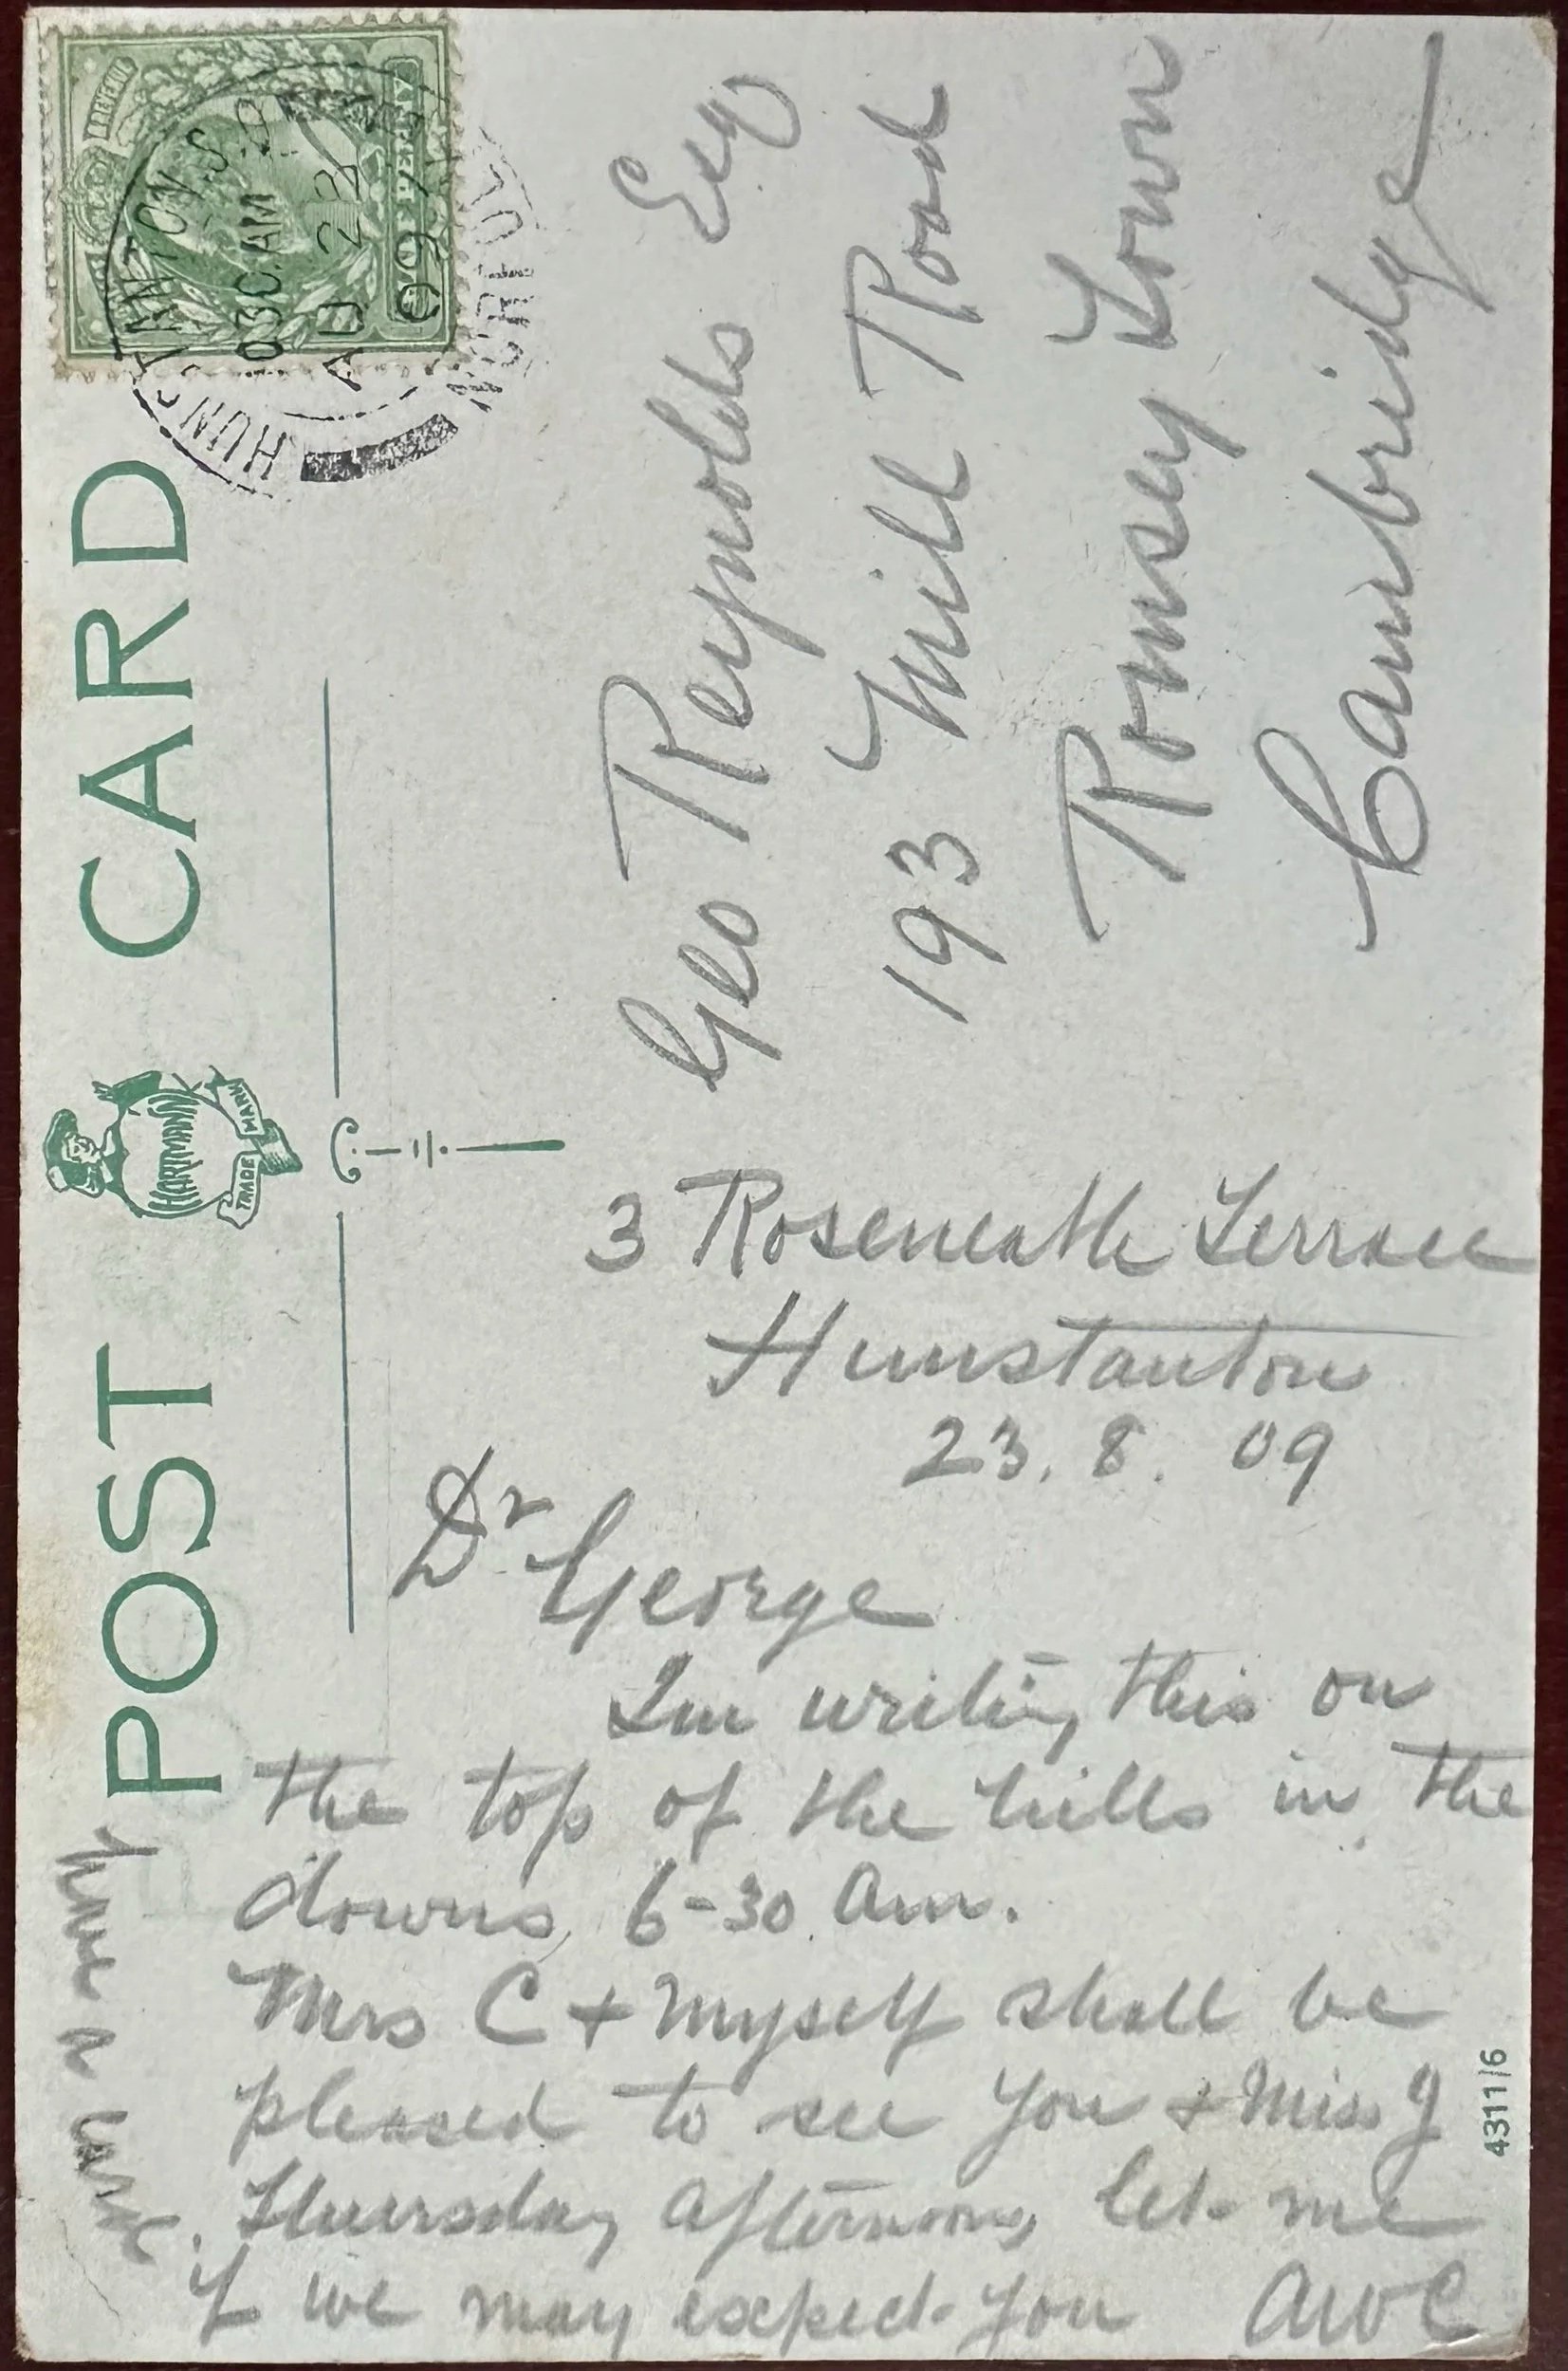 POST CARD
HARTMANN
TRADE MARK
REVENUE
HUNSTANTON S.O
1030 AM
AU 23
09
NORFOLK
Geo Reynolds Esq
193 Mill Road
Romsey Town
Cambridge
3 Roseneath Terrace
Hunstanton
23. 8. 09
Dr George
Im writing this on
the top of the hills in the
downs, 6-30 am.
Mrs C + myself shall be
pleased to see you + Miss J
Thursday afternoon, let me
if we may expect you AWC
have a
4311/6